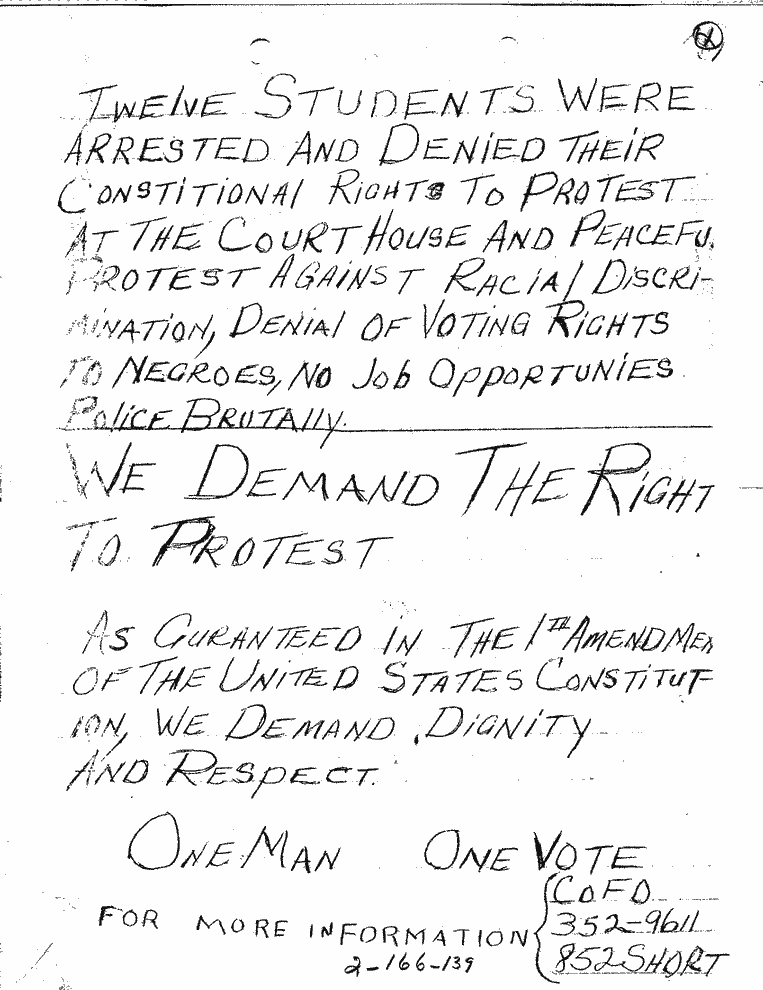 TWELVE STUDENTS WERE
ARRESTED AND DENIED THEIR
CONSTITIONAL RIGHTS TO PROTEST
AT THE COURT HOUSE AND PEACEFU
PROTEST AGAINST RACIAL DISCRI-
MINATION, DENIAL OF VOTING RIGHTS
TO NEGROES, NO JOB OPPORTUNIES
POLICE BRUTALLY.
WE DEMAND THE RIGHT
TO PROTEST
AS GURANTEED IN THE 1TH AMENDMEN
OF THE UNITED STATES CONSTITUT-
ION, WE DEMAND DIGNITY
AND RESPECT.
ONE MAN ONE VOTE
FOR MORE INFORMATION
COFO
352-9611
852 SHORT
2-166-139